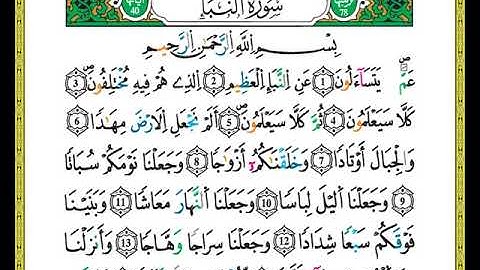 سُورَةُ النَّبَإِ
بِسْمِ اللَّهِ الرَّحْمَٰنِ الرَّحِيمِ
عَمَّ يَتَسَآءَلُونَ 1 عَنِ النَّبَإِ الْعَظِيمِ 2 الَّذِي هُمْ فِيهِ مُخْتَلِفُونَ 3
كَلَّا سَيَعْلَمُونَ 4 ثُمَّ كَلَّا سَيَعْلَمُونَ 5 أَلَمْ نَجْعَلِ الْأَرْضَ مِهَٰدًا 6
وَالْجِبَالَ أَوْتَادًا 7 وَخَلَقْنَٰكُمْ أَزْوَٰجًا 8 وَجَعَلْنَا نَوْمَكُمْ سُبَاتًا
9 وَجَعَلْنَا الَّيْلَ لِبَاسًا 10 وَجَعَلْنَا النَّهَارَ مَعَاشًا 11 وَبَنَيْنَا
فَوْقَكُمْ سَبْعًا شِدَادًا 12 وَجَعَلْنَا سِرَاجًا وَهَّاجًا 13 وَأَنزَلْنَا